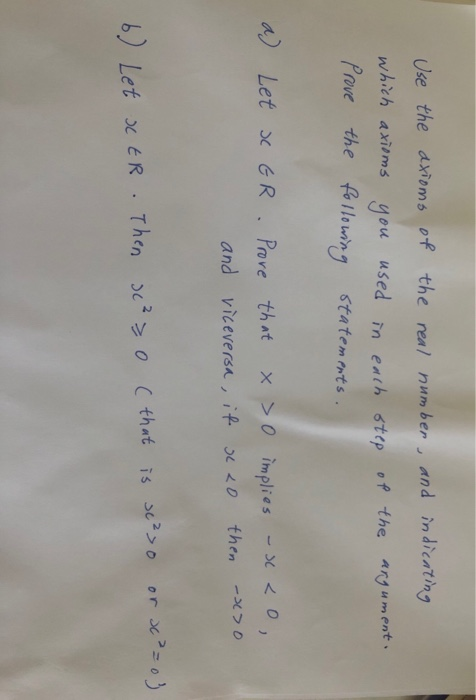 Use the axioms of the real number, and indicating
which axioms you used in each step of the argument.
Prove the following statements.
a) Let x ∈ R. Prove that x > 0 implies -x < 0,
and viceversa, if x < 0 then -x > 0
b) Let x ∈ R. Then x² ≥ 0 (that is x² > 0 or x² = 0)